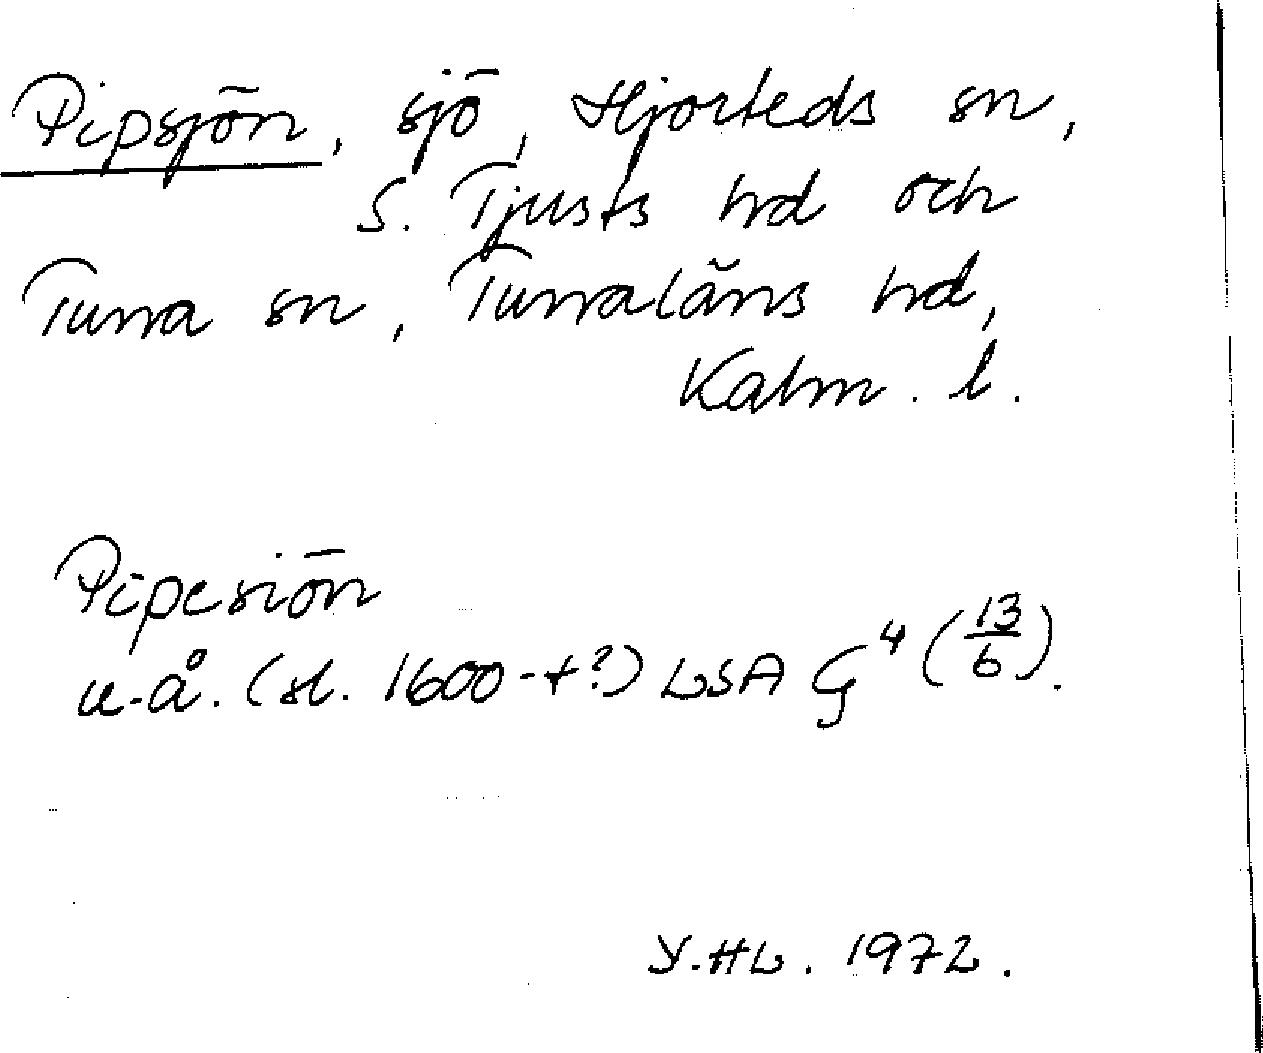 Pipsjön, sjö, Hjorteds sn,
S. Tjusts hd och
Tuna sn, Tunaläns hd,
Kalm. l.
Pipesiön
u.å. (sl. 1600-t?) LSA G⁴ (13/6).
Y.HL. 1972.